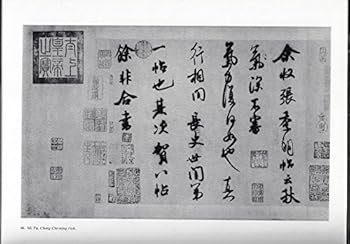 余收張季明帖云秋
氣深不審
氣力復何如也真
行相間長史世間第
一帖也其次賀八帖
餘非合書
太上
皇帝
之寶
Mi Fu, Chang Chi-ming t'ieh.